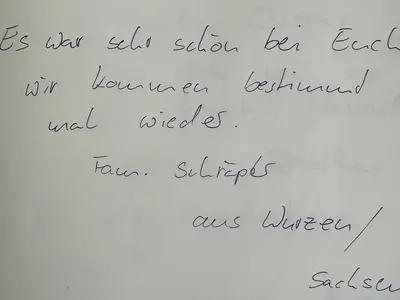 Es war sehr schön bei Euch
wir kommen bestimmt
mal wieder.
Fam. Schräpler
aus Wurzen/
Sachsen